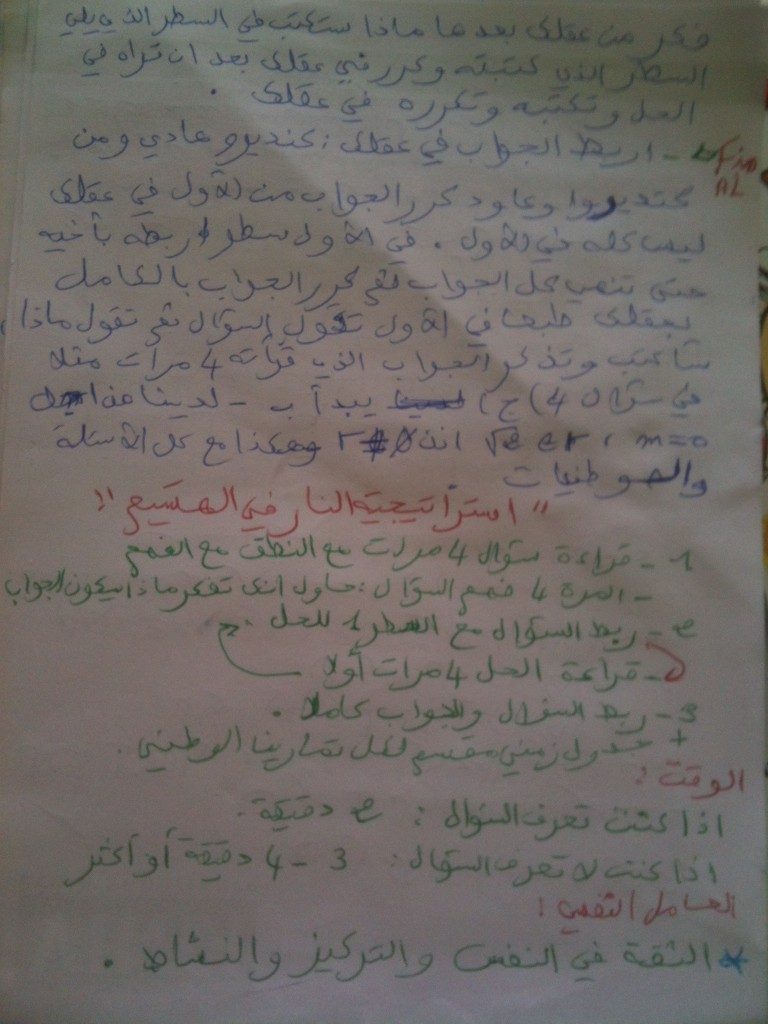 فكر من عقلك بعدها ماذا ستكتب في السطر الذي يلي
السطر الذي كتبته وكرر في عقلك بعد ان تراه في
الحل وتكتبه وتكرره في عقلك .
- اربط الجواب في عقلك : كنديرو عادي ومن
Fin
AL
كنديروا وعاود كرر الجواب من الأول في عقلك
ليس كله في الأول . في الأول سطر اربطه بأخيه
حتى تنهي كل الجواب ثم كرر الجواب بالكامل
بعقلك طبعا في الأول تقول السؤال ثم تقول ماذا
سأكتب وتذكر الجواب الذي قرأته 4 مرات مثلا
في سؤال 4) ج) يبدأ ب - لدينا من اجل
m=0 ، وهكذا مع كل الأسئلة
والوطنيات
" استراتيجية النار في الهشيم "
1 - قراءة سؤال 4 مرات مع النطق مع الفهم
- المرة 4 فهم السؤال : حاول انك تفكر ماذا سيكون الجواب
2 - ربط السؤال مع السطر 1 للحل .
- قراءة الحل 4 مرات أولا
3 - ربط السؤال والجواب كاملا .
+ جدول زمني مقسم لكل تمارين الوطني .
الوقت :
اذا كنت تعرف السؤال : 2 دقيقة .
اذا كنت لا تعرف السؤال : 3 - 4 دقيقة أو أكثر
العامل النفسي :
* الثقة في النفس والتركيز والنشاط .